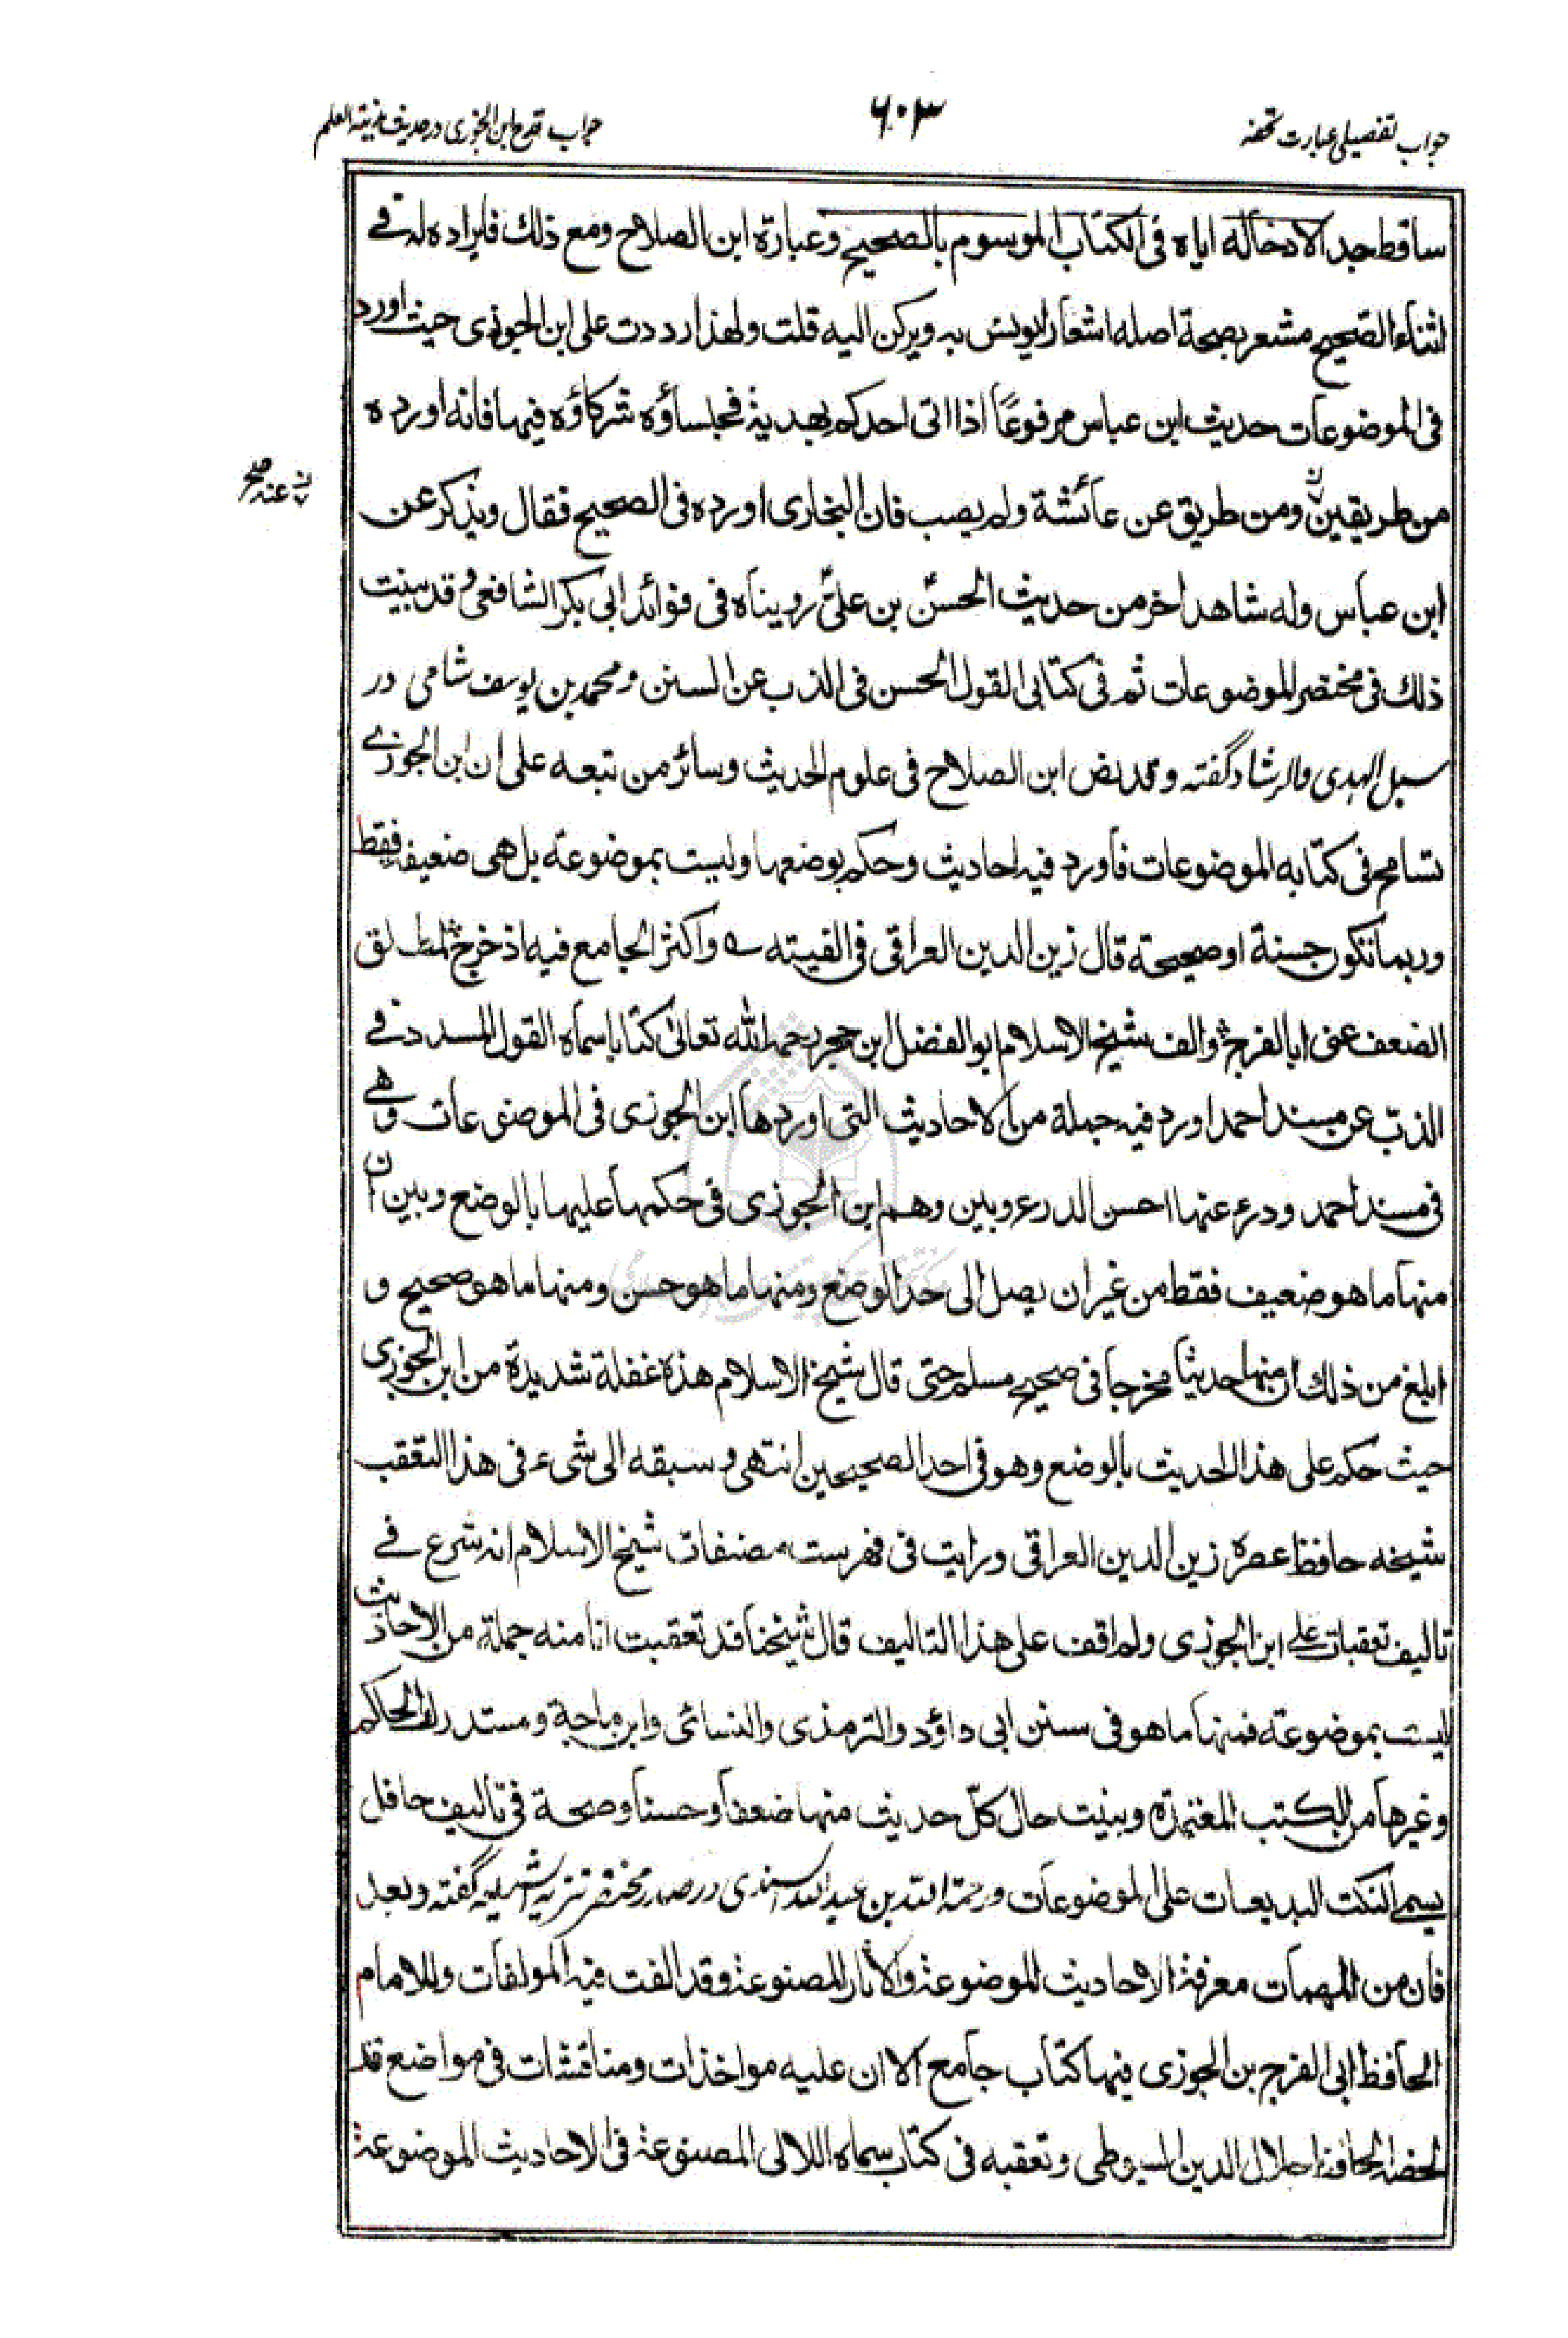 جواب تفصیلی عبارت تحفه
۶۰۳
جواب قدح ابن الجوزی در حدیث مدینة العلم
ساقط جدا لادخاله اياه فى الكتاب الموسوم بالصحيح وعبارة ابن الصلاح ومع ذلك فايراده له فے
اثناء الصحيح مشعر بصحة اصله اشعارا يونس به ويركن اليه قلت ولهذا رددت على ابن الجوزى حيث اورد
فى الموضوعات حديث ابن عباس مرفوعاً اذا اتى احدكم بهدية فجلساؤه شركاؤه فيها فانه اورده
من طريقين ومن طريق عن عائشة ولم يصب فان البخارى اورده فى الصحيح فقال ويذكر عن
عنه صح
ابن عباس وله شاهد اخر من حديث الحسن بن على رويناه فى فوائد ابى بكر الشافعى وقد بينت
ذلك فى مختصر الموضوعات ثم فى كتابى القول الحسن فى الذب عن السنن ومحمد بن يوسف شامى در
سبل الهدى والرشاد گفته وقد نص ابن الصلاح فى علوم الحديث وسائر من تبعه على ان ابن الجوزے
تسامح فى كتابه الموضوعات فاورد فيه احاديث وحكم بوضعها وليست بموضوعة بل هى ضعيفة فقط
وربما تكون حسنة او صحيحة قال زين الدين العراقى فى الفيته واكثر الجامع فيه اذ خرج لمطلق
الضعف عنى ابا الفرج والف شيخ الاسلام ابو الفضل ابن حجر رحمه الله تعالى كتابا سماه القول المسدد فے
الذب عن مسند احمد اورد فيه جملة من الاحاديث التى اوردها ابن الجوزى فى الموضوعات وهے
فى مسند احمد ودرء عنها احسن الدرء وبين وهم ابن الجوزى فى حكمها عليها بالوضع وبين ان
منها ما هو ضعيف فقط من غير ان يصل الى حد الوضع ومنها ما هو حسن ومنها ما هو صحيح و
ابلغ من ذلك ان منها حديثا مخرجا فى صحيح مسلم حتى قال شيخ الاسلام هذه غفلة شديدة من ابن الجوزى
حيث حكم على هذا الحديث بالوضع وهو فى احد الصحيحين انتهى وسبقه الى شىء فى هذا التعقب
شيخه حافظ عصره زين الدين العراقى ورايت فى فهرست مصنفات شيخ الاسلام انه شرع فے
تاليف تعقبات على ابن الجوزى ولم اقف على هذا التاليف قال شيخنا قد تعقبت انا منه جملة من الاحاديث
ليست بموضوعة فمنها ما هو فى سنن ابى داؤد والترمذى والنسائى وابن ماجة ومستدرك الحاكم
وغيرها من الكتب المعتمدة وبينت حال كلّ حديث منها ضعفا وحسنا وصحة فى تاليف حافل
يسمى النكت البديعات على الموضوعات ورحمة الله بن عبد الله السندى در صدر مختصر تنزيه الشريعه گفته وبعد
فان من المهمات معرفة الاحاديث الموضوعة والاثار المصنوعة وقد الفت فيه المولفات وللامام
الحافظ ابى الفرج بن الجوزى فيها كتاب جامع الا ان عليه مواخذات ومناقشات فى مواضع قد
لخصه الحافظ جلال الدين السيوطى وتعقبه فى كتاب سماه اللالى المصنوعة فى الاحاديث الموضوعة